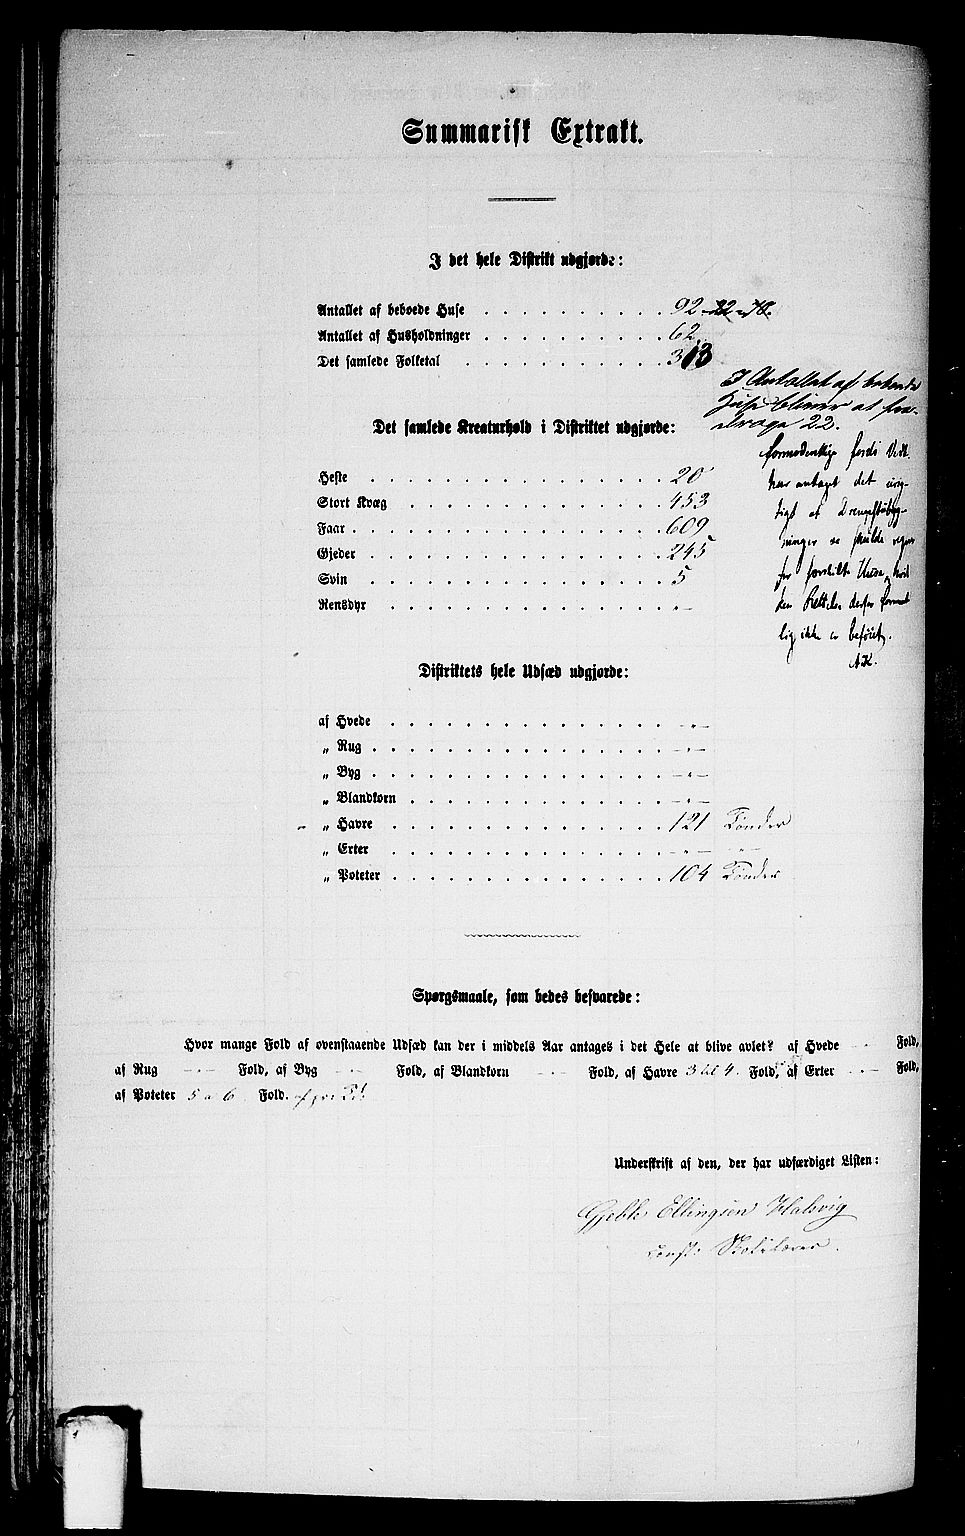 Summarisk Extrakt.
I det hele Distrikt udgjorde:
Antallet af beboede Huse . . . . . . . . . . 92 - 22 = 70.
Antallet af Husholdninger . . . . . . . . . . 62.
Det samlede Folketal . . . . . . . . . . . 313
I Antallet af beboede
Huse bliver at fra-
drage 22.
Det samlede Kreaturhold i Distriktet udgjorde:
formodentlig fordi Vedk.
har antaget det urig-
tigt at
for særskilte Huse, hvil
lig ikke er beføiet.
AK.
Heste . . . . . . . . . . . . . . . . 20
Stort Kvæg . . . . . . . . . . . . . . 453
Faar . . . . . . . . . . . . . . . . . 609
Gjeder . . . . . . . . . . . . . . . . 245
Svin . . . . . . . . . . . . . . . . 5
Rensdyr . . . . . . . . . . . . . . . „ —
Distriktets hele Udsæd udgjorde:
af Hvede . . . . . . . . . . . . . . . - „ —
„ Rug . . . . . . . . . . . . . . . . - „ —
„ Byg . . . . . . . . . . . . . . . . - „ —
„ Blandkorn . . . . . . . . . . . . . . - „ —
„ Havre . . . . . . . . . . . . . . . 121 Tønder
„ Erter . . . . . . . . . . . . . . . - „ — - „ —
„ Poteter . . . . . . . . . . . . . . . 104 Tønder
Spørgsmaale, som bedes besvarede:
Hvor mange Fold af ovenstaaende Udsæd kan der i middels Aar antages i det Hele at blive avlet? af Hvede — Fold,
af Rug — Fold, af Byg — Fold, af Blandkorn — Fold, af Havre 3 til 4. Fold, af Erter — Fold,
af Poteter 5 a 6 Fold.
Underskrift af den, der har udfærdiget Listen:
Gjebk Ellingsen Halsvig
const: Skolelærer.